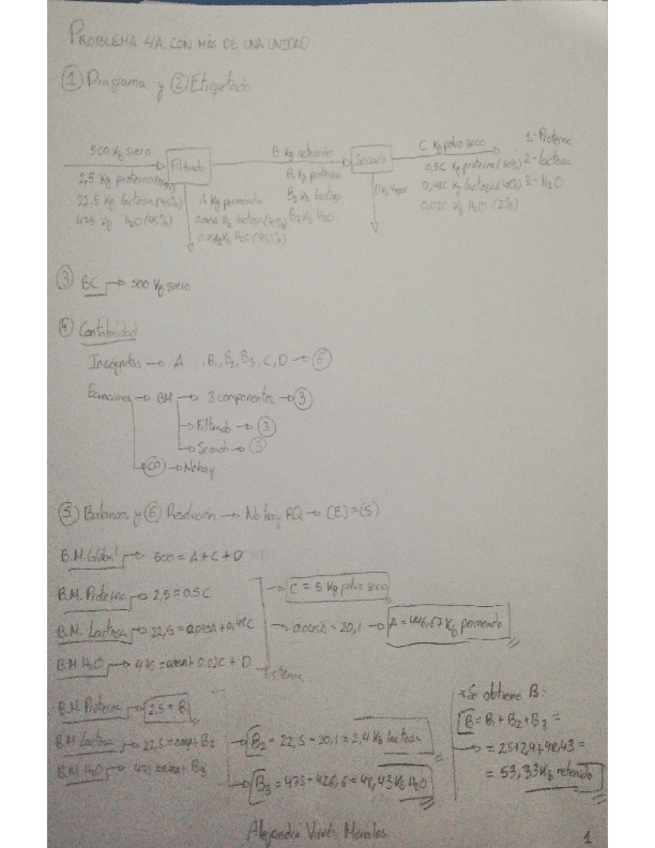 PROBLEMA 4A. CON MÁS DE UNA UNIDAD
① Diagrama y ② Etiquetado
500 Kg suero
Filtrado
2,5 Kg proteína
22,5 Kg lactosa (4,5%)
475 Kg H₂O (95%)
A Kg permeado
lactosa (4,5%)
H₂O (95,5%)
B Kg retenido
B₁ Kg proteína
B₂ Kg lactosa
B₃ Kg H₂O
Secado
D Kg vapor
C Kg polvo seco
0,5C Kg proteína (50%)
0,48C Kg lactosa (48%)
0,02C Kg H₂O (2%)
1- Proteína
2- lactosa
3- H₂O
③ BC → 500 Kg suero
④ Contabilidad
Incógnitas → A, B₁, B₂, B₃, C, D → ⑥
Ecuaciones → BM → 3 componentes → ③
→ Filtrado → ③
→ Secado → ③
→ CO → No hay
⑤ Balances y ⑥ Resolución → No hay RQ → (E)=(S)
B.M. Global → 500 = A + C + D
B.M. Proteína → 2,5 = 0,5C
→ C = 5 Kg polvo seco
B.M. Lactosa → 22,5 = 0,045A + 0,48C
→ 0,045A = 20,1 → A = 446,67 Kg permeado
B.M. H₂O → 475 = + 0,02C + D
Sistema
B.M. Proteína → 2,5 = B₁
B.M. Lactosa → 22,5 = + B₂
→ B₂ = 22,5 - 20,1 = 2,4 Kg lactosa
B.M. H₂O → 475 = + B₃
→ B₃ = 475 - 426,6 = 48,43 Kg H₂O
* Se obtiene B:
B = B₁ + B₂ + B₃ =
= 2,5+2,4+48,43 =
= 53,33 Kg retenido
Alejandro Vivés Morales
1